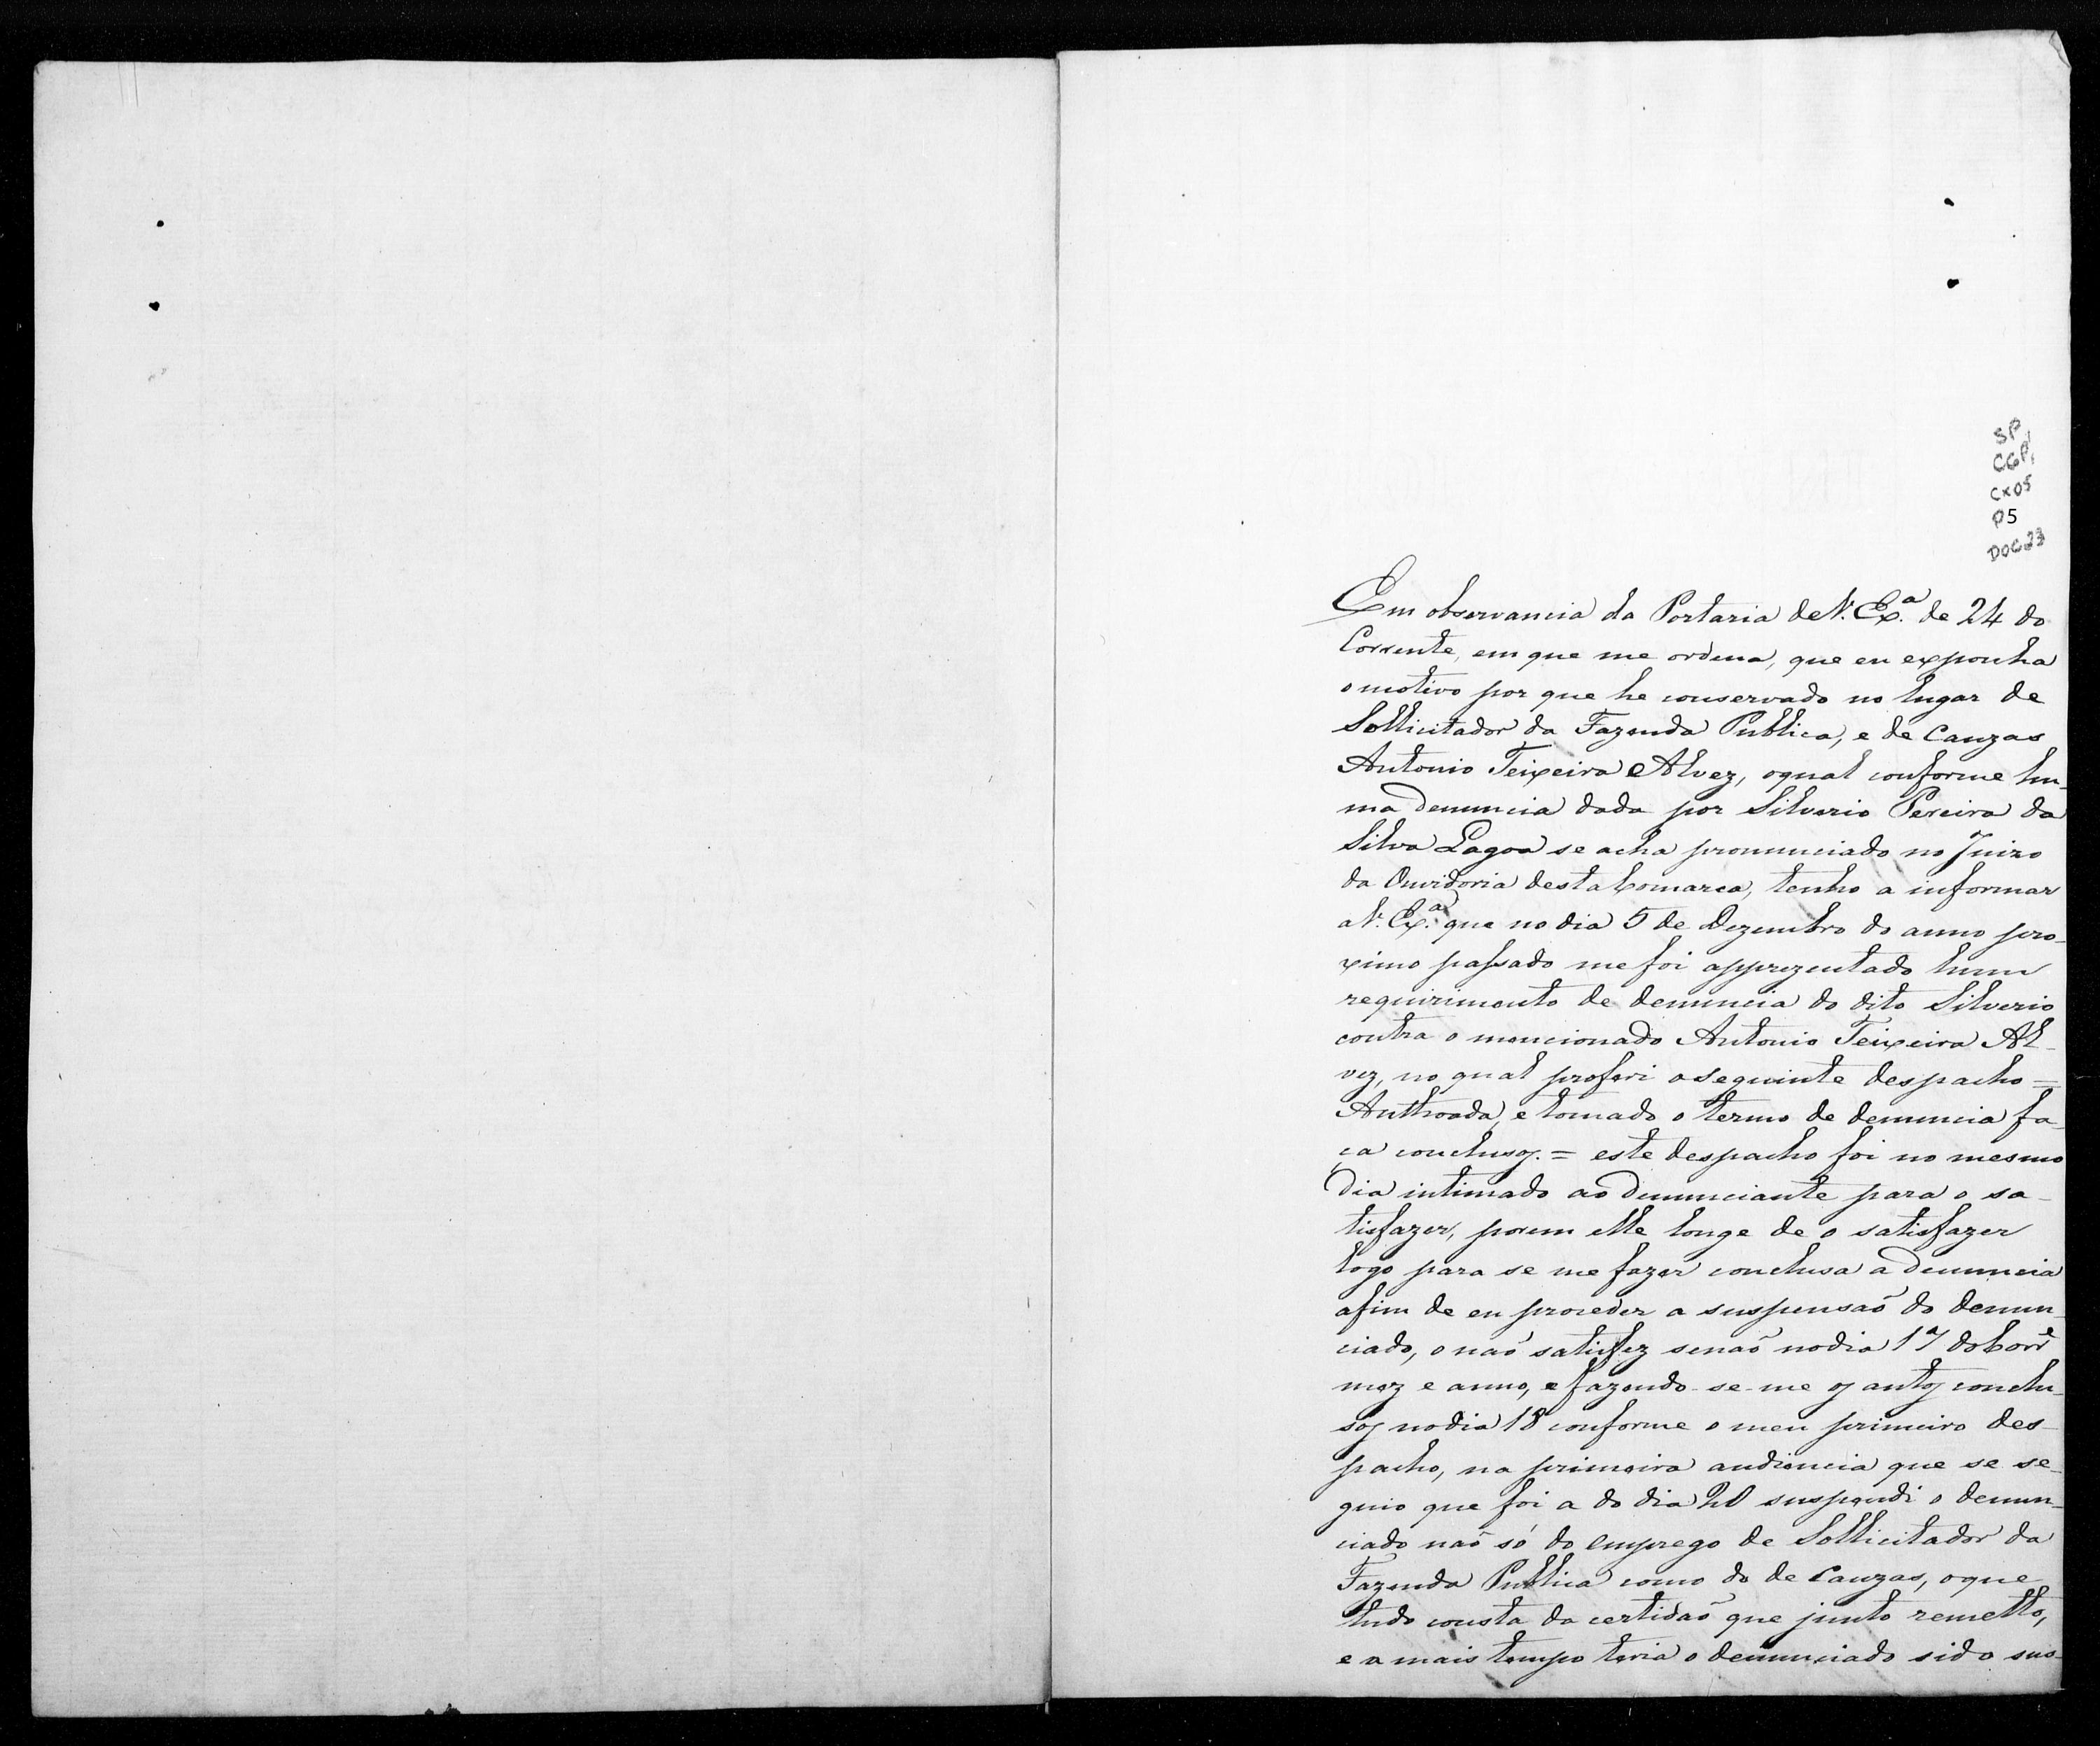 SP
CGP1
CX05
P5
DOC23
Em observancia da Portaria de V. Ex.ª de 24 do
Corrente, em que me ordena, que eu exponha
o motivo por que he conservado no lugar de
Sollicitador da Fazenda Publica, e de Cauzas
Antonio Teixeira Alvez, oqual conforme hu-
ma denuncia dada por Silverio Pereira da
Silva Lagoa se acha pronunciado no Juizo
da Ouvidoria desta Comarca, tenho a informar
a V. Ex.ª que no dia 5 de Dezembro do anno pro-
ximo passado me foi apprezentado hum
requirimento de denuncia do dito Silverio
contra o mencionado Antonio Teixeira Al-
vez, no qual proferi o seguinte despacho =
Authoada, e tomado o termo de denuncia fa-
ça conclusos. = este despacho foi no mesmo
dia intimado ao denunciante para o sa-
tisfazer, porem elle longe de o satisfazer
logo para se me fazer conclusa a denuncia
afim de eu proceder a suspensaõ do denun-
ciado, o naõ satisfez senaõ no dia 17 do Corr.e
mez e anno, e fazendo-se-me os autos conclu-
sos no dia 18 conforme o meu primeiro des-
pacho, na primeira audiencia que se se-
guio que foi a do dia 20 suspendi o denun-
ciado naõ só do emprego de Sollicitador da
Fazenda Publica como do de Cauzas, oque
tudo consta da certidaõ que junto remetto,
e a mais tempo teria o denunciado sido sus-